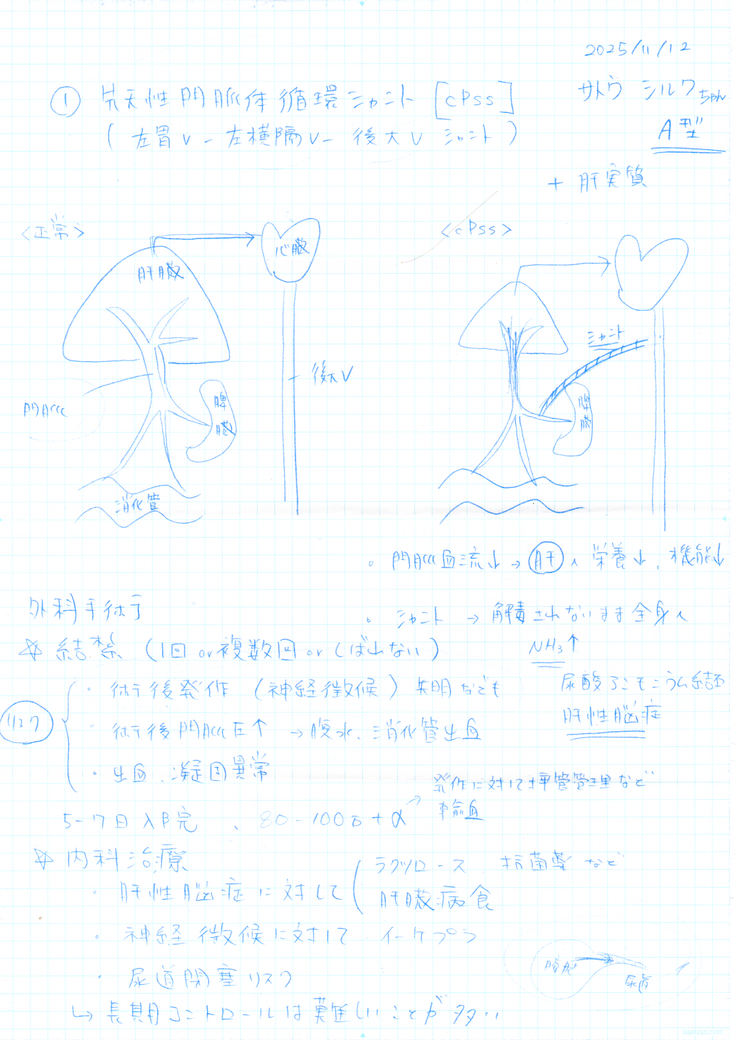 2025/11/12
① 先天性門脈体循環シャント [cPSS]
サトウ シルクちゃん
(左胃v-左横隔v-後大v シャント)
A型
+ 肝実質
<正常>
心臓
肝臓
後大v
門脈
脾臓
消化管
<cPSS>
シャント
脾臓
。門脈血流↓→肝へ栄養↓、機能↓
外科手術
。シャント → 解毒されないまま全身へ
☆ 結紮 (1回 or 複数回 or しばれない)
NH₃↑
リスク
・術後発作 (神経徴候) 失明なども
尿酸アンモニウム結石
・術後門脈圧↑ →腹水、消化管出血
肝性脳症
・出血、凝固異常
発作に対して挿管管理など
輸血
5-7日入院、80-100万+α
☆ 内科治療
・肝性脳症に対して
ラクツロース 抗菌薬 など
肝臓病食
・神経徴候に対して イーケプラ
・尿道閉塞リスク
膀胱
尿道
↳ 長期コントロールは難しいことが多い